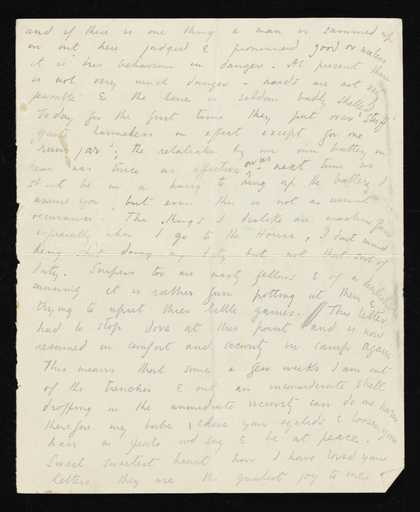 and if there is one thing a man is summed up
on out here judged & pronounced good or useless
it is his behaviour in danger. At present there
is not very much danger - roads are not very
possible & the line is seldom badly shelled.
Today for the first time they put over "Stuff"
quite harmless in effect except for one
'rum jar'; the retaliation by our own battery in
rear was twice as effective on us next time
not be in a hurry to ring up the battery I
assure you, but even this is not an usual
occurrence. The things I dislike are machine guns
especially when I go to the House, I don't mind
being shot doing my duty but not that sort of
duty. Snipers too are nasty fellows & of a
cunning it is rather fun potting at them &
trying to upset their little games. This letter
had to stop dove at this point and is now
resumed in comfort and security in camp again.
This means that some a few weeks I am out
of the trenches & only an inconsiderate shell
dropping in the immediate vicinity can do me harm
therefore my babe close your eyelids & loosen your
hair in youth and say & be at peace.
Sweet sweetest heart how I have loved your
letters they are the greatest joy to me &